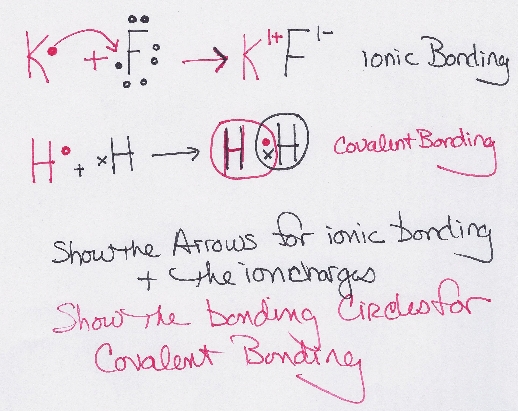 K• + F → K¹⁺ F¹⁻ ionic Bonding
H• + xH → H •x H Covalent Bonding
Show the Arrows for ionic bonding
+ the ion charges
Show the bonding Circles for
Covalent Bonding